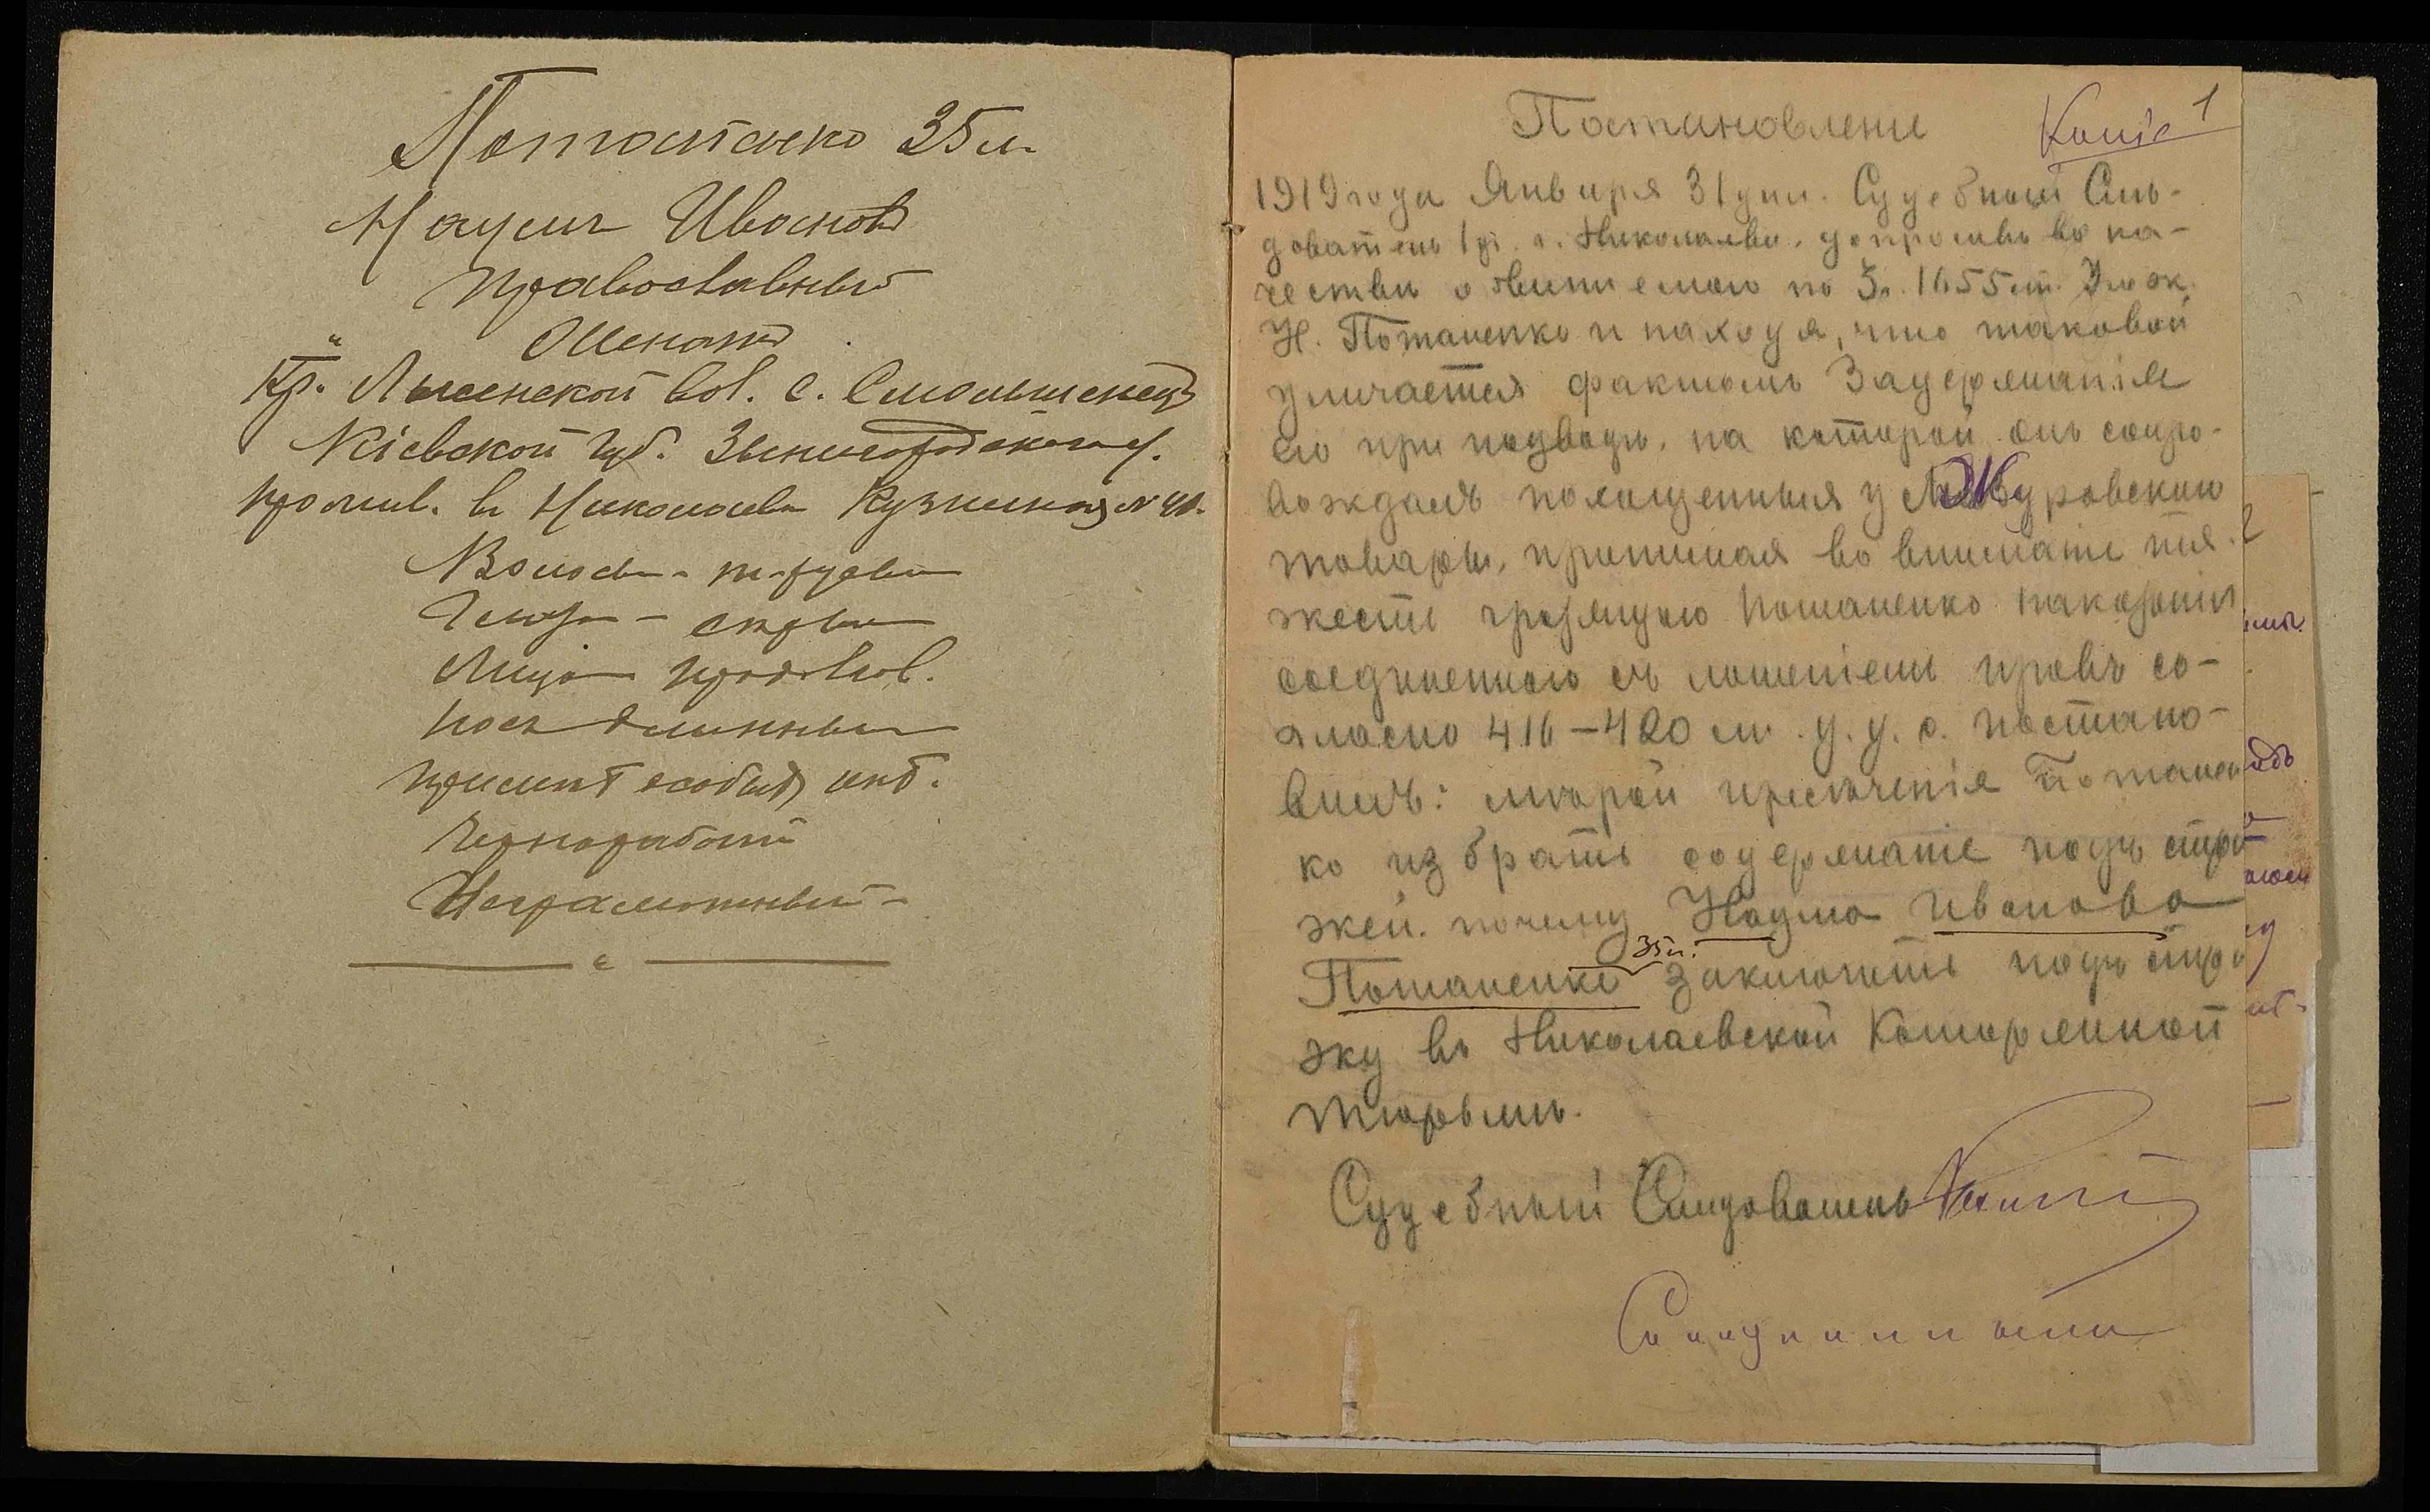 Потапенко 35 л.
Наумъ Ивановъ
Православный
Женатъ
Кр. Лысенской вол. с. Смольченецъ
Кіевской губ. Звенигородскаго у.
прожив. въ Николаевѣ Кузнечная № 40.
Волосы - т-русые
Глаза - сѣрые
Лицо продолгов.
носъ длинный
примѣтъ особыхъ нѣтъ.
Чернорабочій
Неграмотный -
Постановление
Копія 1
1919 года Января 31 дня. Судебный Слѣ-
дователь 1 уч. г. Николаева, допросивъ въ ка-
чествѣ обвиняемаго по 3 ч. 1655 ст. Улож.
Н. Потапенко и находя, что таковой
уличается фактомъ Задержанія
его при подводѣ, на которой онъ сопро-
вождалъ похищенныя у Мажуровскаго
товары, принимая во внимание тя-
жесть грозящаго Потапенко наказания
соединеннаго съ лишеніемъ правъ со-
гласно 416-420 ст. У. У. С. постано-
вилъ: мѣрой пресѣченія Потапен
ко избрать содержание подъ стра
жей. почему Наума Иванова
35 л.
Потапенко заключить подъ стра
жу въ Николаевской Каторжной
тюрьмѣ.
Судебный Слѣдователь